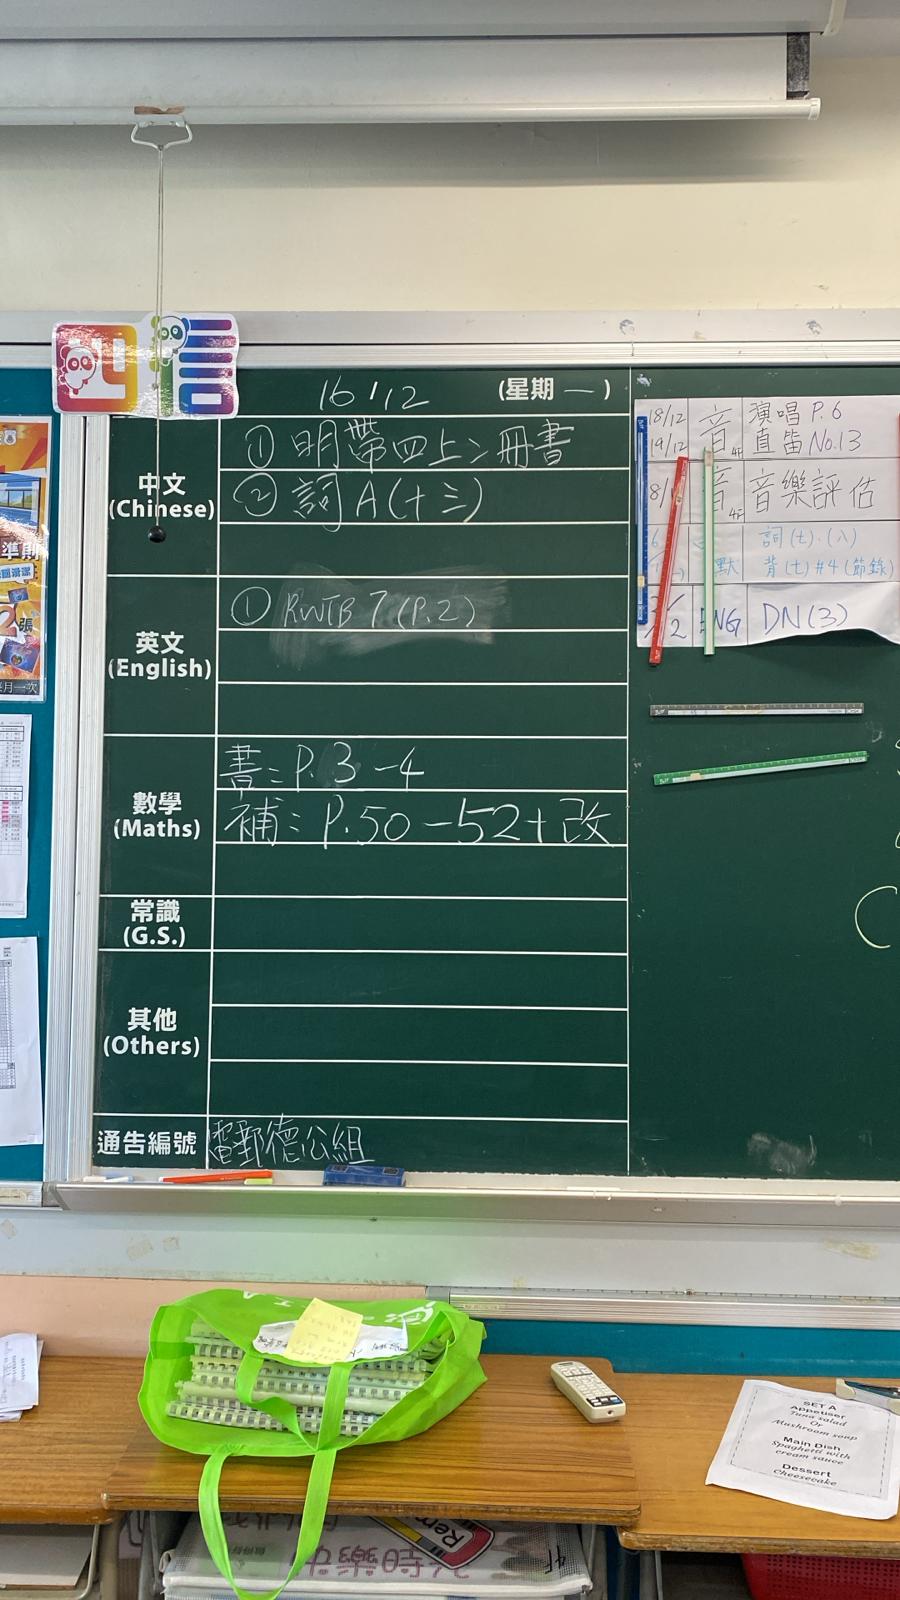 四信
16/12 (星期一)
中文
(Chinese)
① 明帶四上二冊書
② 詞A(十三)
英文
(English)
① RWTB 7 (P.2)
數學
(Maths)
書: P. 3-4
補: P.50-52+改
常識
(G.S.)
其他
(Others)
通告編號
電郵德公組
18/12
19/12
音
演唱 P.6
直笛 No.13
音
音樂評估
默
詞(七).(八)
背(七)#4(節錄)
ENG
DN(3)
準則
2張
每月一次
SET A
Appetiser
Tuna salad
Or
Mushroom soup
Main Dish
Spaghetti with
cream sauce
Dessert
Cheesecake